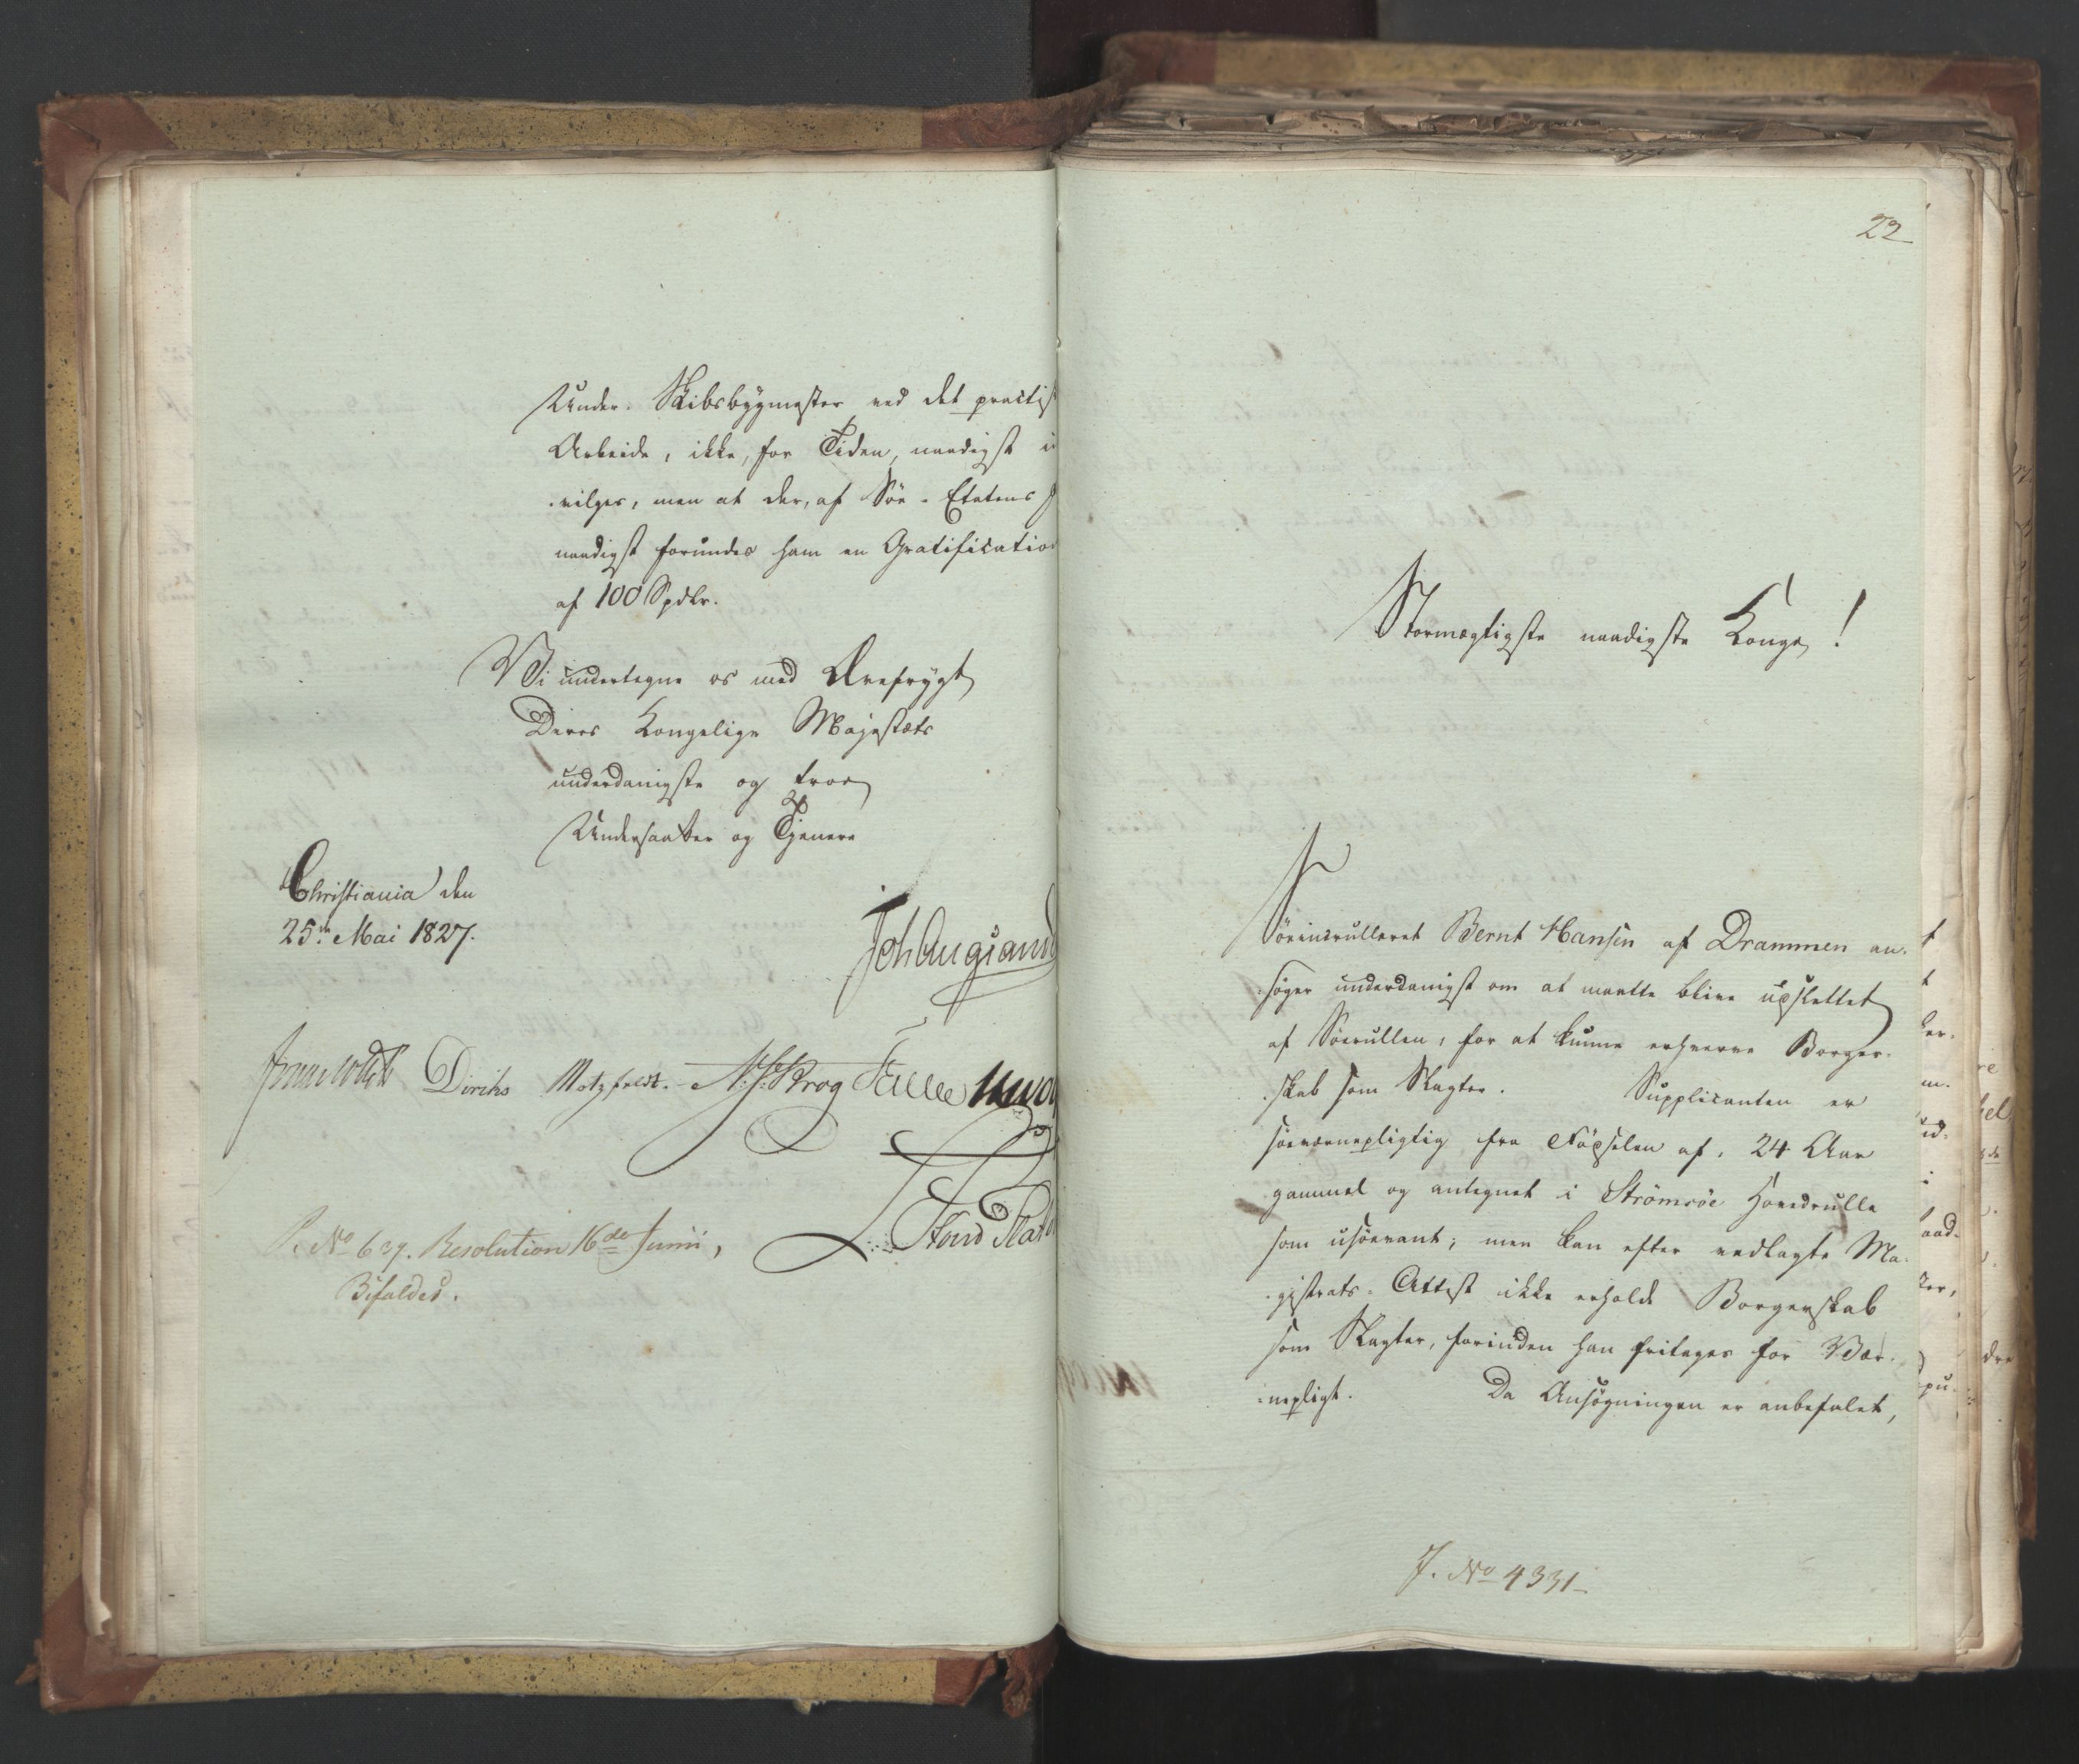 Under-Skibsbygmester ved det practis
Arbeide, ikke, for Tiden, naadigst
vilges, men at der, af Söe-Etatens
naadigst forundes ham en Gratification
af 100 Spdlr.
Vi undertegne os med Ærefrygt
Deres Kongelige Majestæts
underdanigste og troe
Undersaatter og Tjenere
Christiania den
25de Mai 1827.
Joh Aug Sand
Diriks Motzfeldt. Krog
P. No 627. Resolution 16de Junii,
Bifaldes.
22
Stormægtigste naadigste Konge!
Söeindrulleret Bernt Hansen af Drammen an-
söger underdanigst om at maatte blive udslettet
af Söerullen, for at kunne erhverve Borger-
skab som Slagter. Supplicanten er
söeværnepligtig fra Födselen af, 24 Aar
gammel og antegnet i Strömsöe Hovedrulle
som usöevant; men kan efter vedlagte Ma-
gistrats-Attest ikke erholde Borgerskab
som Slagter, forinden han fritages for Vær-
nepligt. Da Ansögningen er anbefalet,
J. No 4331